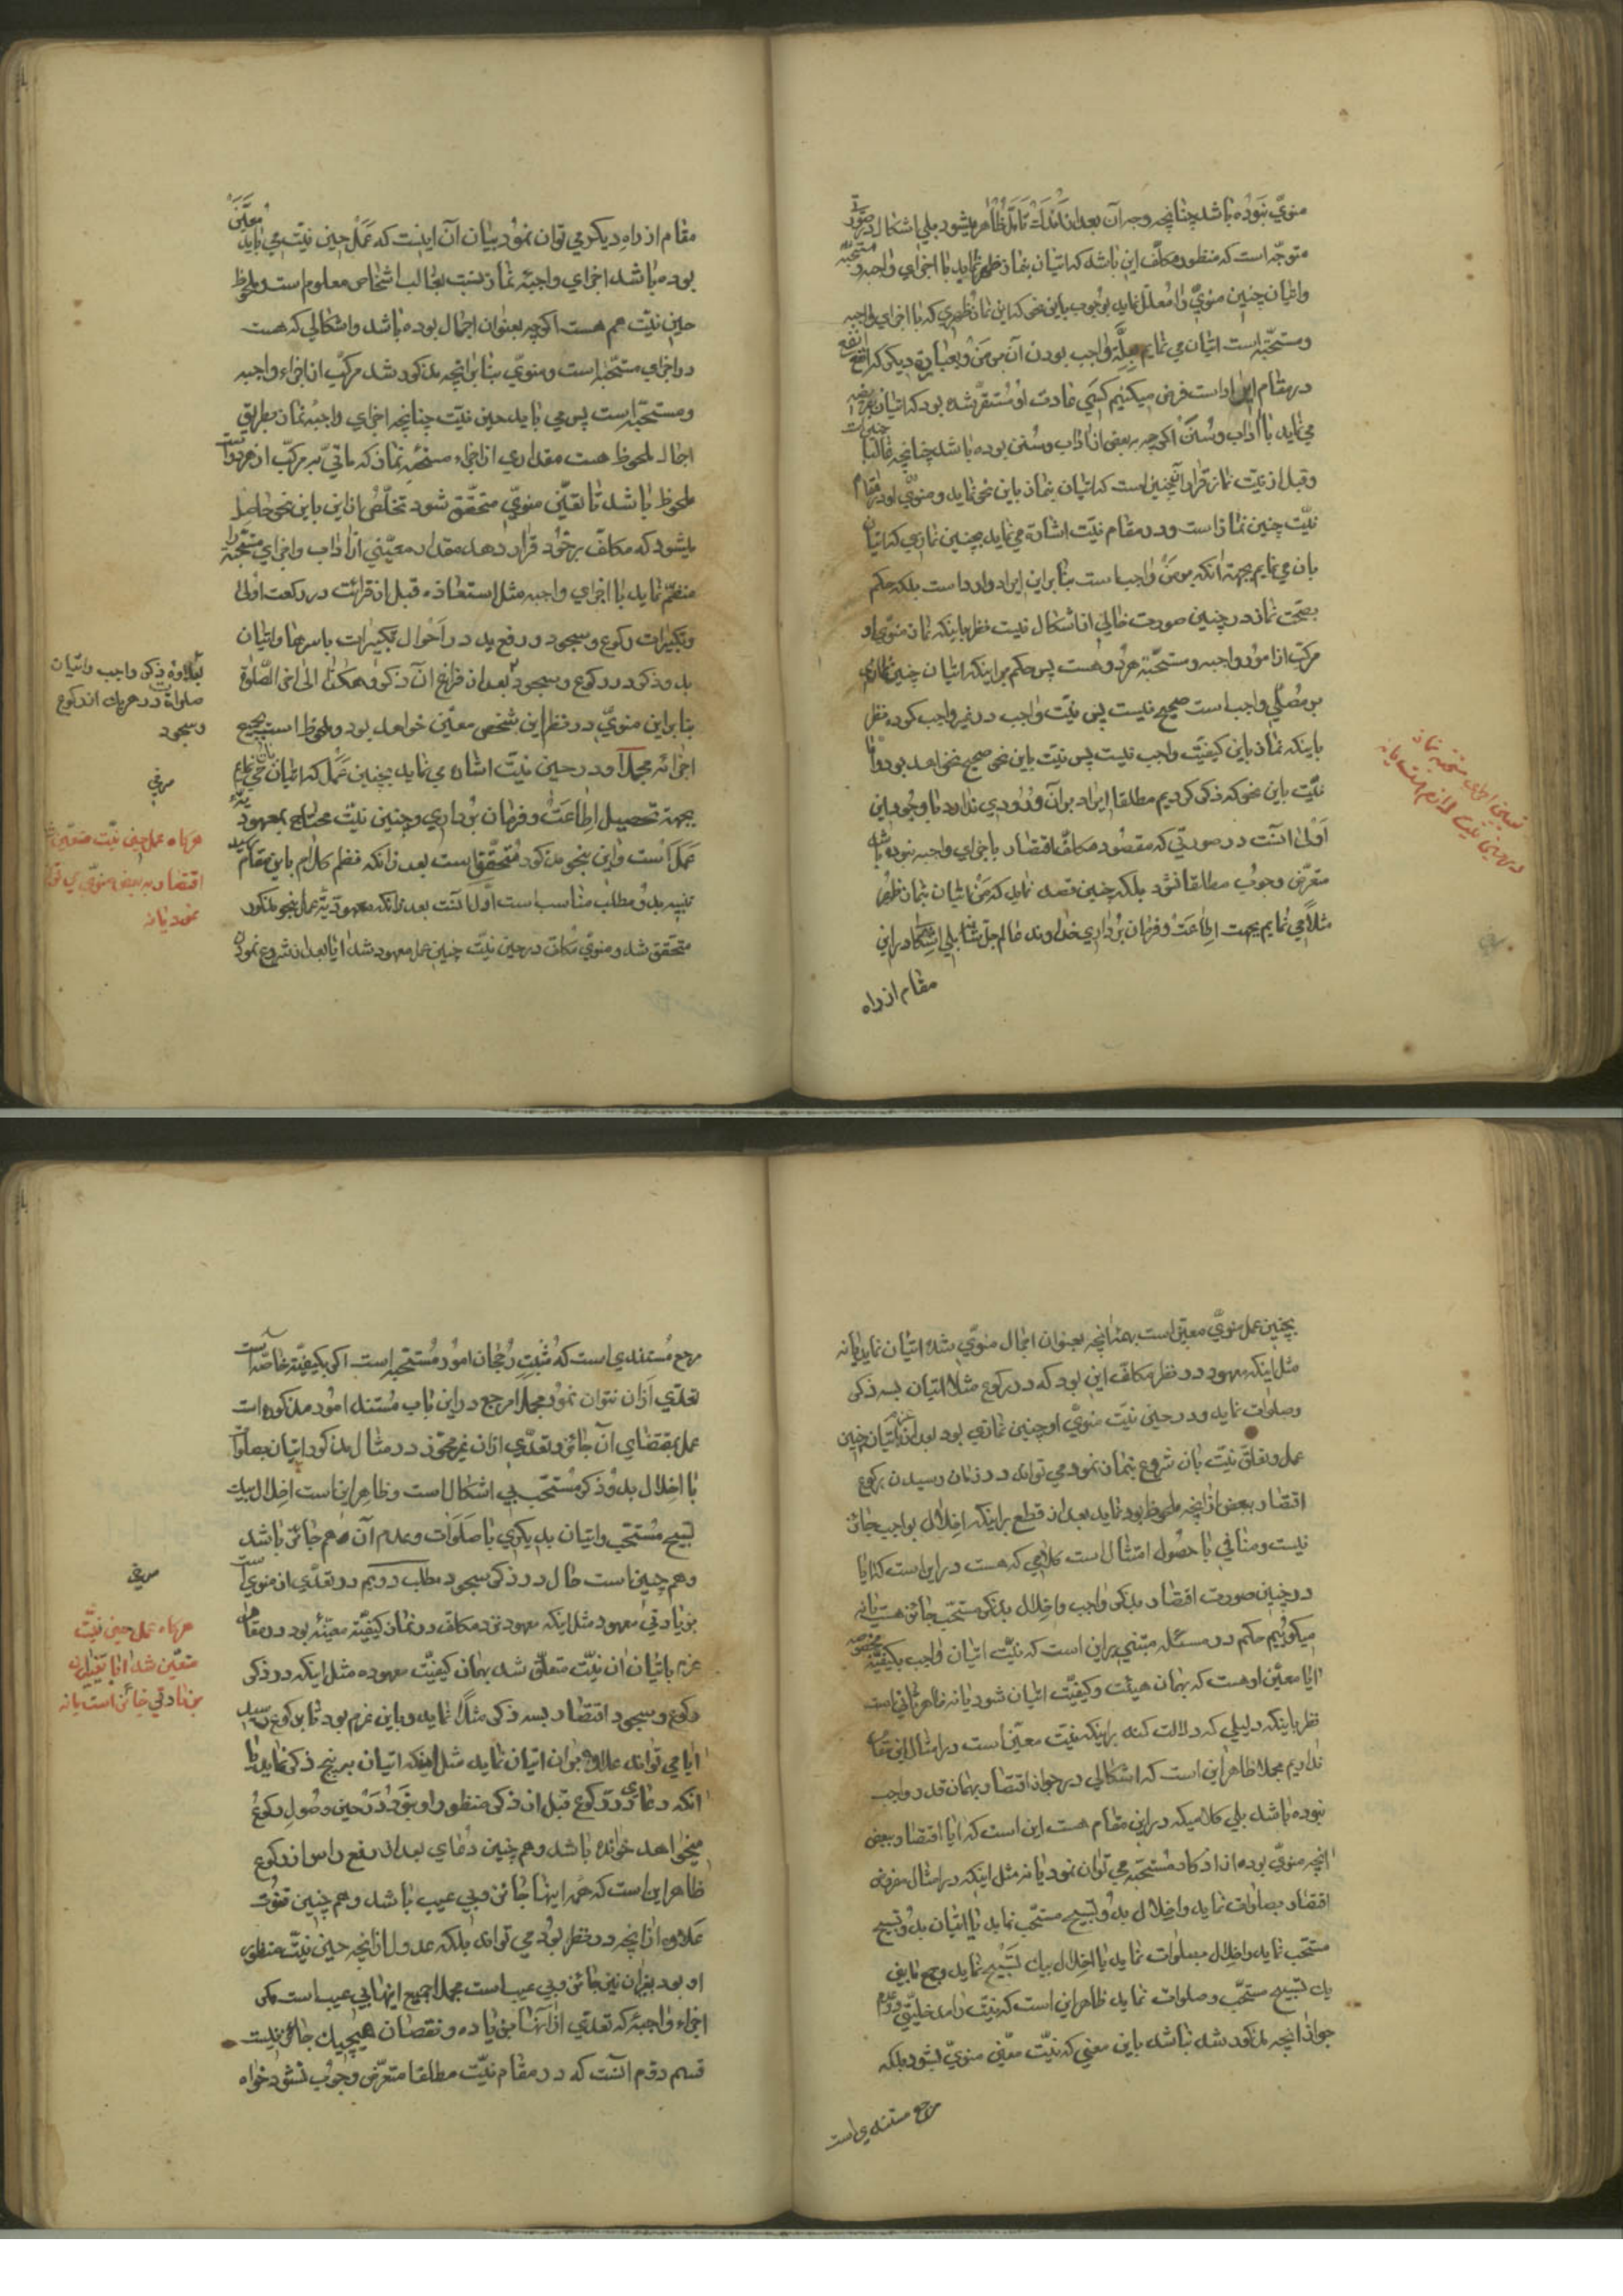 منوي نبوده باشد چنانچه وجه آن بعد از اندك تامل ظاهر ميشود بلي اشكال در صورتي
متوجه است كه منظور مكلف اين باشد كه اتيان بنماز ظهر نمايد با اجزاي واجبه و مستحبه
واتيان چنين منوي را معلل نمايد بوجوب باين نحو كه اين نماز ظهري كه با اجزاي واجبه
ومستحبه است اتيان مي نمايم بعلة واجب بودن آن بر من و بعبارة ديگر كه انفع
در مقام ايراد است فرض ميكنيم كسي عادت او مستقر شده بود كه اتيان بفريضه
مي نمايد با آداب و سنن اگرچه ببعض از آداب و سنن بوده باشد چنانچه غالبا چنين است
وقبل از نيت نماز قرار آنچنين است كه اتيان بنماز باين نحو نمايد و منوي او در مقام
نيت چنين نماز است و در مقام نيت اشاره مي نمايد بچنين نمازي كه اتيان
بان مي نمايم بجهة آنكه بر من واجب است بنابراين ايراد وارد است بلكه حكم
بصحت نماز در چنين صورت خالي از اشكال نيست نظر باينكه نماز منوي او
مركب از امور واجبه و مستحبة هر دو هست پس حكم بر اينكه اتيان چنين نمازي
بر مصلي واجب است صحيح نيست پس نيت واجب در غير واجب كرده نظر
باينكه نماز باين كيفيت واجب نيست پس نيت باين نحو صحيح نخواهد بود و اما
نيت باين نحو كه ذكر كرديم مطلقا ايراد بر آن ورودي ندارد با وجود اين
اولي آنست در صورتي كه مقصود مكلف اقتصار باجزاي واجبه نبوده باشد
متعرض وجوب مطلقا نشود بلكه چنين قصد نمايد كه من اتيان بنماز ظهر
مثلا مي نمايم بجهت اطاعت و فرمان برداري خداوند عالم جل شانه بلي اشكال در اين
مقام از راه
تعيين اجزاي مستحبه نماز
در حين نيت لازم است يا نه
مقام از راه ديگر مي توان نمود بيان آن اينست كه عمل حين نيت مي بايد معين
بوده باشد اجزاي واجبه نماز نسبت بغالب اشخاص معلوم است و ملحوظ
حين نيت هم هست اگرچه بعنوان اجمال بوده باشد و اشكالي كه هست
در اجزاي مستحبه است و منوي بنابر آنچه مذكور شد مركب از اجزاء واجبه
ومستحبه است پس مي بايد حين نيت چنانچه اجزاي واجبه نماز بطريق
اجمال ملحوظ هست مقداري از اجزاء مستحبه نماز كه ماتي به مركب از هر دو است
ملحوظ باشد تا تعين منوي متحقق شود تخلص از اين باين نحو حاصل
ميشود كه مكلف بر خود قرار دهد مقدار معيني از آداب و اجزاي مستحبه را
منضم نمايد با اجزاي واجبه مثل استعاذه قبل از قرائت در ركعت اولي
وتكبيرات ركوع و سجود و رفع يد در احوال تكبيرات باسرها و اتيان
بدو ذكر در ركوع و سجود بعد از فراغ آن ذكر و هكذا الي اخر الصلوة
بنابراين منوي در نظر اين شخص معين خواهد بود و ملحوظ است جميع
اجزائه مجملا و در حين نيت اشاره مي نمايد بچنين عمل كه اتيان بان مي نمايم
بجهة تحصيل اطاعت و فرمان برداري و چنين نيت محتاج بمعهودية
عمل است و اين بنحو مذكور متحقق است بعد از آنكه نظم كلام باين مقام رسيد
تنبيه بدو مطلب مناسب است اول آنست بعد از آنكه معهودية عمل بنحو مذكور
متحقق شد و منوي مكلف در حين نيت چنين عمل معهود شد ايا بعد از شروع نمودن
بعلاوه ذكر واجب و اتيان
صلوات در هر يك از ركوع
وسجود
هرگاه عمل حين نيت متعين شد
اقتصار ببعض منوي مي توان
نمود يا نه
بچنين عمل منوي معين است بهمه آنچه بعنوان اجمال منوي شده اتيان نمايد يا نه
مثل اينكه معهود در نظر مكلف اين بود كه در ركوع مثلا اتيان بسه ذكر
وصلوات نمايد و در حين نيت منوي او چنين نمازي بود بعد از اتيان چنين
عمل و تعلق نيت بان شروع بنماز نمود مي تواند در زمان رسيدن بركوع
اقتصار ببعض از آنچه ملحوظ بود نمايد بعد از قطع بر اينكه اخلال بواجب جائز
نيست و منافي با حصول امتثال است كلامي كه هست در اين است كه ايا
در چنين صورت اقتصار بذكر واجب و اخلال بذكر مستحب جائز هست يا نه
ميگوئيم حكم در مسئله مبتني بر اين است كه نيت اتيان واجب بكيفية مخصوصه
ايا معين او هست كه بهمان هيئت و كيفيت اتيان شود يا نه ظاهر ثاني است
نظر باينكه دليلي كه دلالت كند بر اينكه نيت معين است در امثال اين مقام
نداريم مجملا ظاهر اين است كه اشكالي در جواز اقتصار بهمان قدر واجب
نبوده باشد بلي كلاميكه در اين مقام هست اين است كه ايا اقتصار ببعض
آنچه منوي بوده از اذكار مستحبه مي توان نمود يا نه مثل اينكه در امثال مفروض
اقتصار بصلوات نمايد و اخلال بدو تسبيح مستحب نمايد يا اتيان بدو تسبيح
مستحب نمايد و اخلال بصلوات نمايد يا اخلال بيك تسبيح نمايد و جمع مابين
يك تسبيح مستحب و صلوات نمايد ظاهر اين است كه نيت را مدخليتي در عدم
جواز آنچه مذكور شد نباشد باين معني كه نيت معين منوي نميشود بلكه
مرجع مستندي است
مرجع مستندي است كه مثبت رجحان امور مستحبه است اگر بكيفية خاصه است
تعدي از آن نتوان نمود مجملا مرجع در اين باب مستند امور مذكوره است
عمل بمقتضاي آن جائز و تعدي از آن غير مجوز در مثال مذكور اتيان بصلوات
با اخلال بدو ذكر مستحب بي اشكال است و ظاهر اين است اخلال بيك
تسبيح مستحب و اتيان بديگري با صلوات و عدم آن هم جائز باشد
وهم چنين است حال در ذكر سجود مطلب دويم در تعدي از منوي است
بزيادتي معهود مثل اينكه معهود نزد مكلف در نماز كيفية معينه بود در مقام
عزم باتيان ان نيت متعلق شد بهمان كيفيت معهوده مثل اينكه در ذكر
ركوع و سجود اقتصار بسه ذكر مثلا نمايد و باين عزم بود تا بركوع رسيد
ايا مي تواند علاوه بر ان اتيان نمايد مثل اينكه اتيان بر پنج ذكر نمايد يا
انكه دعاي در ركوع قبل از ذكر منظور او نبود در حين وصول ركوع
ميخواهد خوانده باشد وهم چنين دعاي بعد از رفع راس از ركوع
ظاهر اين است كه همه اينها جائز و بي عيب باشد وهم چنين قنوت
علاوه از آنچه در نظر بود مي تواند بلكه عدول از آنچه حين نيت منظور
او بود بغير آن نيز جائز و بي عيب است مجملا جميع اينها بي عيب است مگر
اجزاء واجبه كه تعدي از آنها بزياده و نقصان هيچيك جائز نيست
قسم دوم آنست كه در مقام نيت مطلقا متعرض وجوب نشود خواه
هرگاه عمل حين نيت
متعين شد ايا تعدي از ان
بزيادتي جائز است يا نه